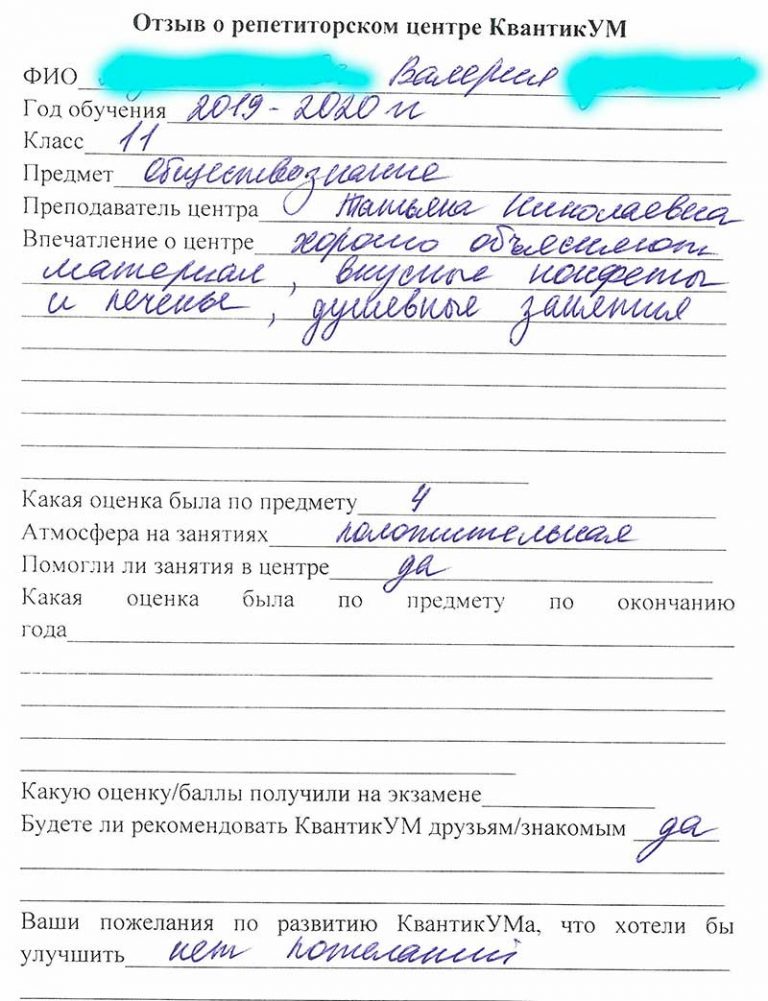 Отзыв о репетиторском центре КвантикУМ
ФИО Валерия
Год обучения 2019-2020 гг
Класс 11
Предмет обществознание
Преподаватель центра Татьяна Николаевна
Впечатление о центре хорошо объясняют
материал, вкусные конфеты
и печенье, душевные занятия
Какая оценка была по предмету 4
Атмосфера на занятиях положительная
Помогли ли занятия в центре да
Какая оценка была по предмету по окончанию
года
Какую оценку/баллы получили на экзамене
Будете ли рекомендовать КвантикУМ друзьям/знакомым да
Ваши пожелания по развитию КвантикУМа, что хотели бы
улучшить нет пожеланий